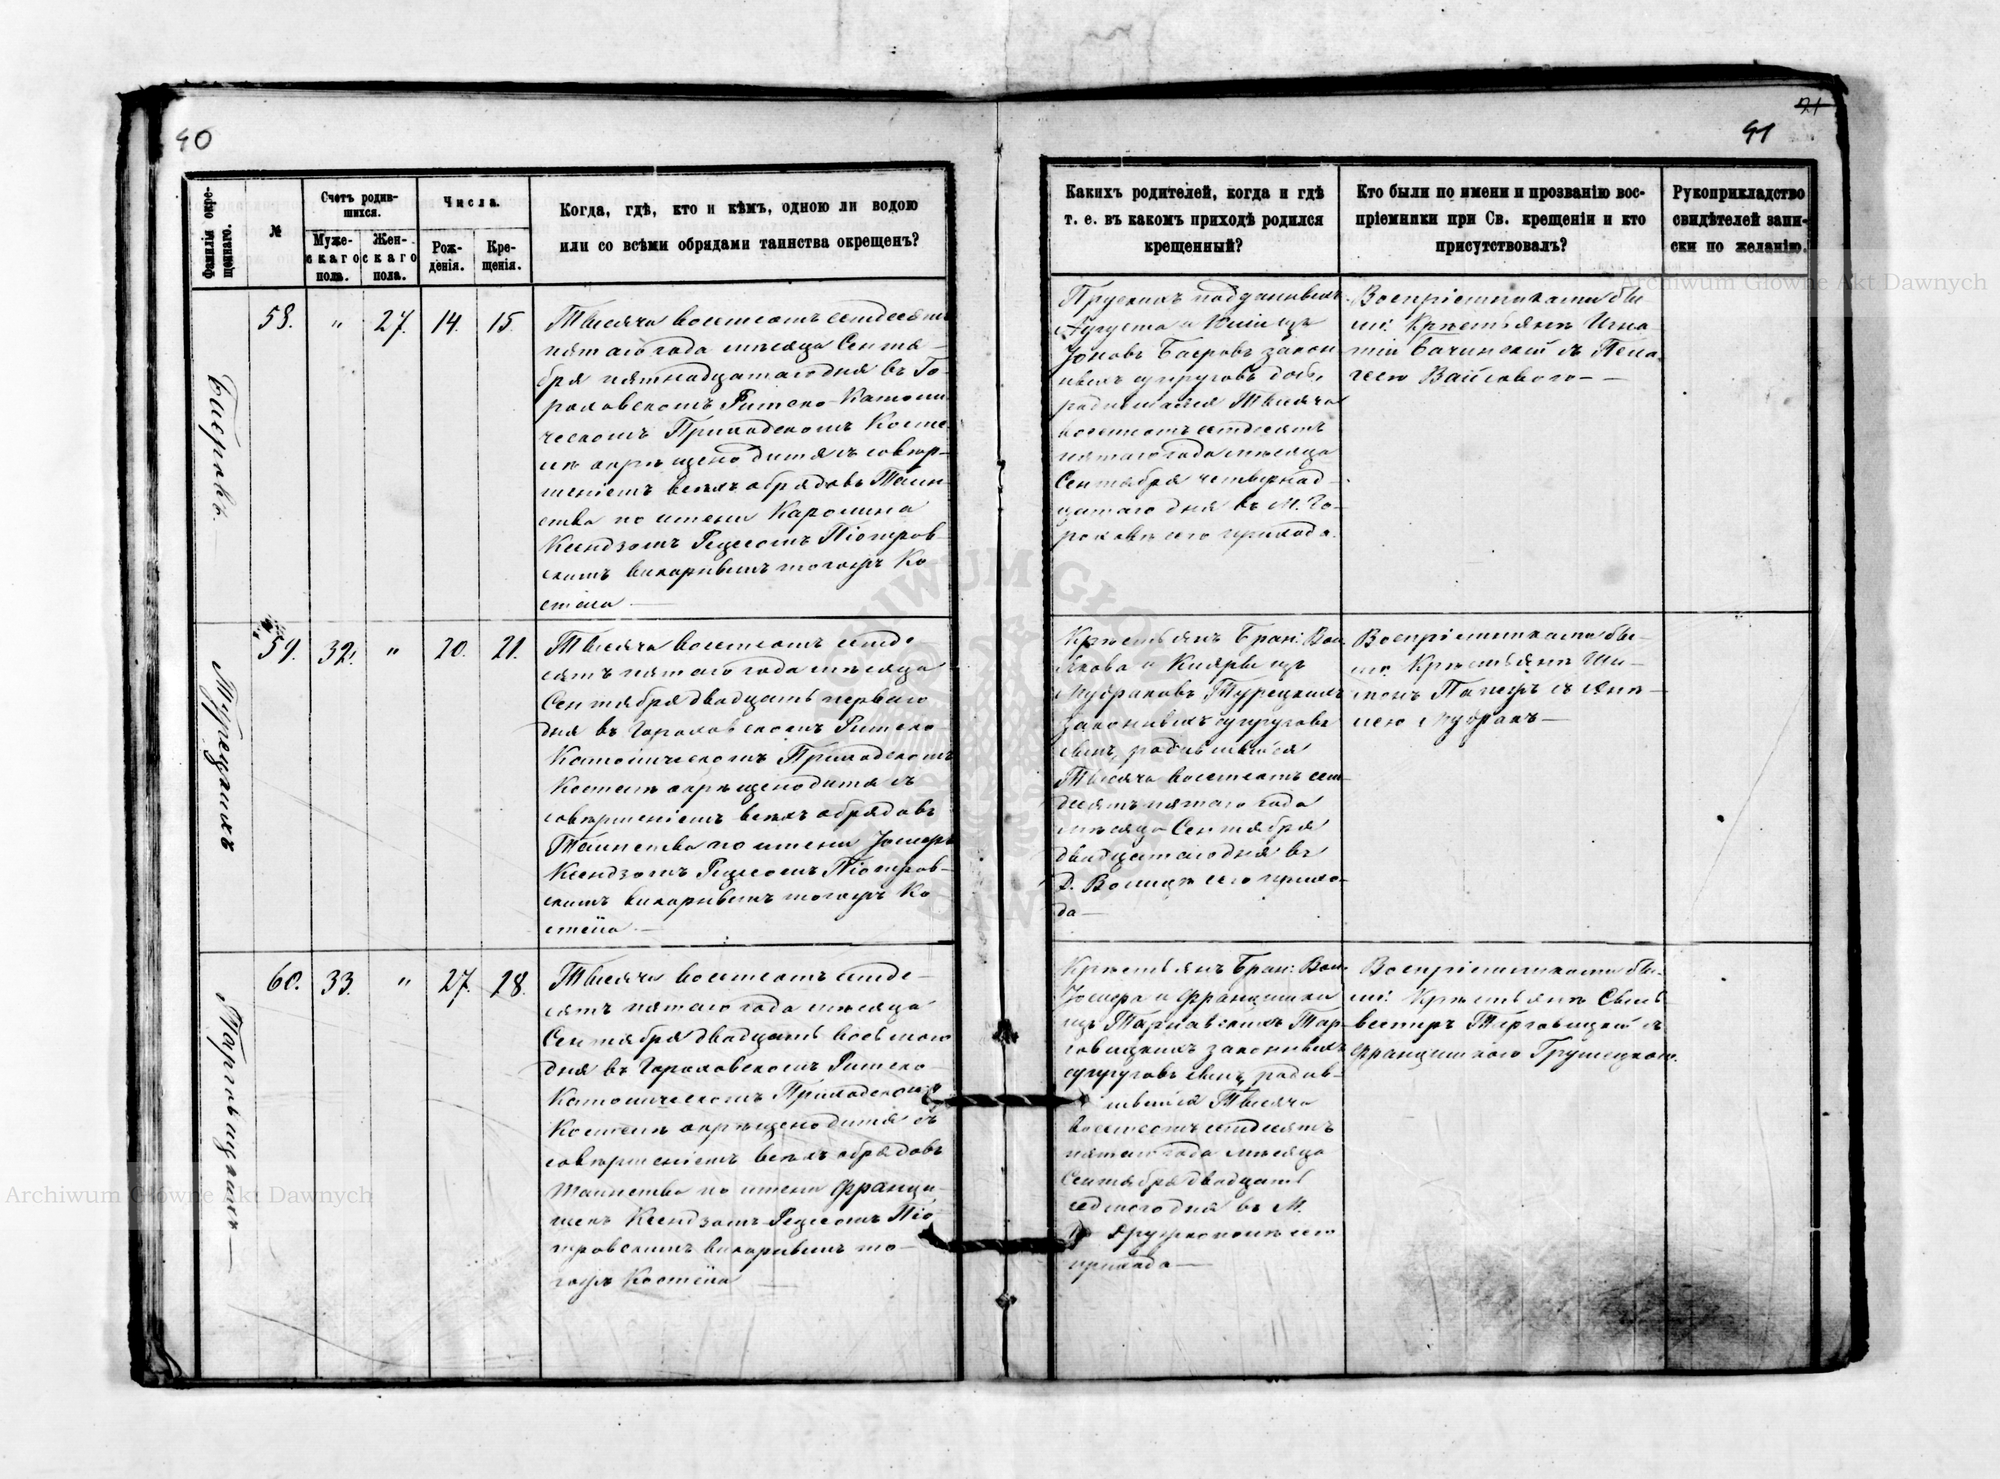 40
Фамилія окре-
щеннаго.
№
Счетъ родив-
шихся.
Муже-
скаго
пола.
Жен-
скаго
пола.
Числа.
Рож-
денія.
Кре-
щенія.
Когда, гдѣ, кто и кѣмъ, одною ли водою
или со всѣми обрядами таинства окрещенъ?
Баеровъ.
58.
"
27.
14.
15.
Тысяча восемсотъ семдесятъ
пятаго года мѣсяца Сентя-
бря пятнадцатаго дня въ Го-
роховскомъ Римско-Католи
ческомъ Приходскомъ Косте
лѣ окрѣщено дитя съ совер-
шеніемъ всѣхъ обрядовъ Таин-
ства по имени Каролина
Ксендзомъ Піотров-
скимъ викарнымъ тогожъ Ко
стела —
Турецкихъ
59.
32.
"
20.
21.
Тысяча восемсотъ семде-
сятъ пятаго года мѣсяца
Сентября двадцать перваго
дня въ Гороховскомъ Римско-
Католическомъ Приходскомъ
Костелѣ окрѣщено дитя съ
совершеніемъ всѣхъ обрядовъ
Таинства по имени Іосифъ
Ксендзомъ Піотров-
скимъ викарнымъ тогожъ Ко
стела —
Тарговицкихъ —
60.
33.
"
27.
28.
Тысяча восемсотъ семде-
сятъ пятаго года мѣсяца
Сентября двадцать восьмого
дня въ Гороховскомъ Римско-
Католическомъ Приходскомъ
Костелѣ окрѣщено дитя съ
совершеніемъ всѣхъ обрядовъ
Таинства по имени Франци-
шекъ Ксендзомъ Піо
тровскимъ викарнымъ то-
гожъ Костела —
41
Каких​ъ родителей, когда и гдѣ
т. е. въ какомъ приходѣ родился
крещенный?
Кто были по имени и прозванію вос-
пріемники при Св. крещеніи и кто
присутствовалъ?
Рукоприкладство
свидѣтелей запи-
ски по желанію.
Прускихъ подданныхъ
Августа и изъ
Баеровъ закон
ныхъ супруговъ дочь,
родившаяся Тысяча
восемсотъ семдесятъ
пятаго года мѣсяца
Сентября четырнад-
цатаго дня въ М. Го-
роховѣ сего прихода.
Воспріемниками бы
ли: Крестьяне Игна-
тій Бачинскій съ Пела-
геею —
Крестьянъ
Якова и изъ
Турецкихъ
законныхъ супруговъ
сынъ, родившійся
Тысяча восемсотъ сем-
десятъ пятаго года
мѣсяца Сентября
двадцатаго дня въ
д. сего прихо-
да —
Воспріемниками бы-
ли: Крестьяне Ши-
монъ съ
—
Крестьянъ
Іосифа и Францишки
изъ Тарнавскихъ Тар-
говицкихъ законныхъ
супруговъ сынъ, родив-
шійся Тысяча
восемсотъ семдесятъ
пятаго года мѣсяца
Сентября двадцать
седмого дня въ М.
Дружкополѣ сего
прихода —
Воспріемниками бы-
ли: Крестьяне Силь
вестръ Тарговицкій съ
Францишкою Грушецкою.
Archiwum Główne Akt Dawnych
Archiwum Główne Akt Dawnych